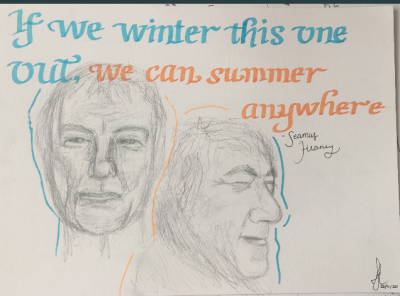 If we winter this one
out, we can summer
anywhere
- Seamus
Heaney